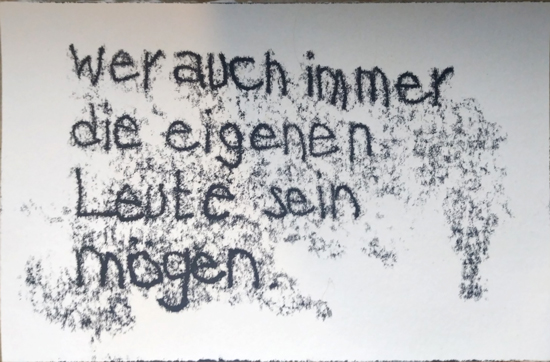 Wer auch immer
die eigenen
Leute sein
mögen.